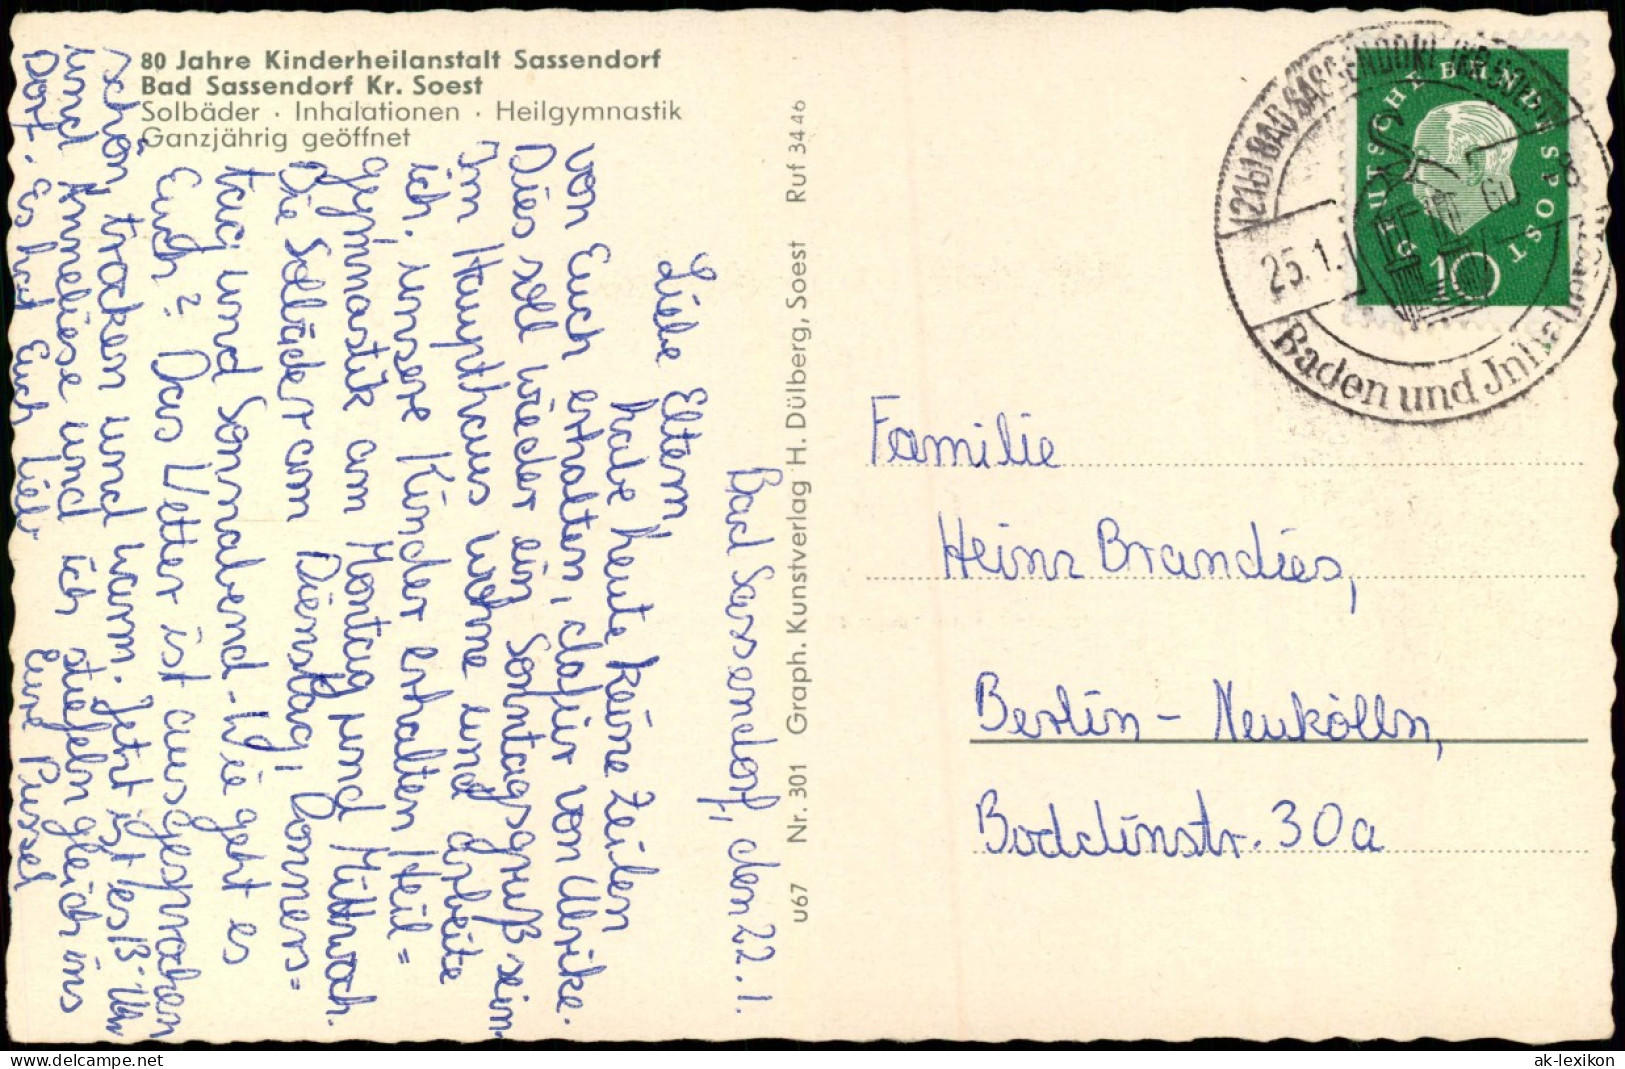 80 Jahre Kinderheilanstalt Sassendorf
Bad Sassendorf Kr. Soest
Solbäder · Inhalationen · Heilgymnastik
Ganzjährig geöffnet
Bad Sassendorf, den 22. 1.
Liebe Eltern,
habe heute keine Zeilen
von Euch erhalten, dafür von Ulrike.
Dies soll wieder ein Sonntagsgruß sein.
Im Haupthaus wohne und arbeite
ich, unsere Kinder erhalten Heil=
gymnastik am Montag und Mittwoch.
Die Solbäder am Dienstag, Donners=
tag und Sonnabend - Wie geht es
Euch? Das Wetter ist ausgesprochen
schön trocken und warm. Jetzt ist es 13-Uhr
und Anneliese und ich stiefeln gleich ins
Dorf. Es hat Euch lieb
Eure Pussel
u67 Nr. 301 Graph. Kunstverlag H. Dülberg, Soest Ruf 3446
(21b) BAD SASSENDORF
25.1. 60
Baden und Inhal
DEUTSCHE BUNDESPOST
10
Familie
Heinz Brandies,
Berlin - Neukölln,
Boddinstr. 30a
ak-lexikon